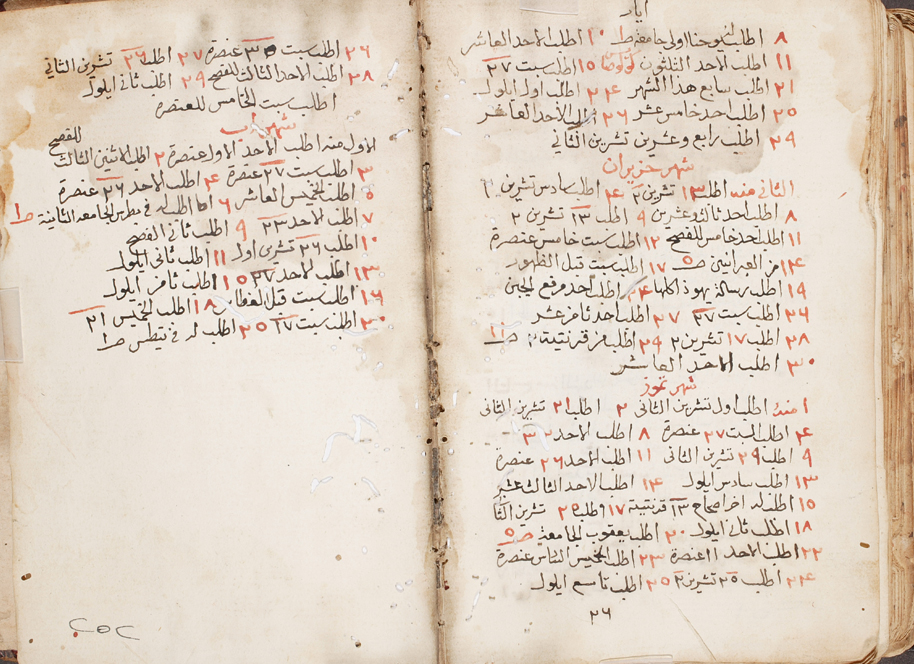 ايار
٨ اطلب انيوحنا اولي جامعة ط ١٠ اطلب الاحد العاشر
١١ اطلب الاحد الثلثون لوقا ١٥ اطلب سبت ٢٧
٢١ اطلب سابع هذا الشهر ٢٤ اطلب اول ايلول
٢٥ اطلب احد خامس عشر ٢٦ اطلب الاحد العاشر
٢٩ اطلب رابع وعشرين تشرين الثاني
شهر حزيران
الثاني منه اطلب ١٣ تشرين ٢ ٤ اطلب سادس تشرين ٢
٨ اطلب احد ثالث وعشرين ٩ اطلب ١٣ تشرين ٢
١١ اطلب احد خامس للفصح ١٢ اطلب سبت خامس عنصرة
١٤ من العبرانيين ص ٥ ١٧ اطلب سبت قبل الظهور
١٩ اطلب رسالة يهوذا كلها ٢٤ اطلب احد مرفع الجبن
٢٦ اطلب سبت ٢٧ ٢٧ اطلب احد ثامن عشر
٢٨ اطلب ١٧ تشرين ٢ ٢٩ اطلب من قرنتية ٢ ص ١١
٣٠ اطلب الاحد العاشر
شهر تموز
١ منه اطلب اول تشرين الثاني ٢ اطلب ٢١ تشرين الثاني
٤ اطلب السبت ٢٧ عنصرة ٨ اطلب الاحد ٣
٩ اطلب ٢٩ تشرين الثاني ١١ اطلب الاحد ٢٦ عنصرة
١٣ اطلب سادس ايلول ١٤ اطلب الاحد الثالث عشر
١٥ اطلب له اخر اصحاح ١٣ قرنتية ١٧ اطلب ٢٥ تشرين الثا
١٨ اطلب ثاني ايلول ٢٠ اطلب يعقوب الجامعة ص ٥
٢٢ اطلب الاحد ١١ عنصرة ٢٣ اطلب الخميس الثامن عنصرة
٢٤ اطلب ٢٥ تشرين ٢ ٢٥ اطلب تاسع ايلول
٢٦
٢٦ اطلب سبت ٣٠ عنصرة ٢٧ اطلب ٢٦ تشرين الثاني
٢٨ اطلب الاحد الثالث للفصح ٢٩ اطلب ثاني ايلول
اطلب سبت الخامس للعنصرة
شهر اب
الاول منه اطلب الاحد الاول عنصرة ٢ اطلب الاثنين الثالث للفصح
٣ اطلب سبت ٢٧ عنصرة ٤ اطلب الاحد ٢٦ عنصرة
٥ اطلب الخميس العاشر ٦ اطلب له في بطرس الجامعة الثانية ص ١
٧ اطلب الاحد ٢٣ ٩ اطلب ثاني الفصح
١٠ اطلب ٢٦ تشرين اول ١١ اطلب ثاني ايلول
١٣ اطلب الاحد ٢٧ ١٥ اطلب ثامن ايلول
١٦ اطلب سبت قبل الغطاس ١٨ اطلب الخميس ٢١
٢٠ اطلب سبت ١٧ ٢٥ اطلب له في تيطس ص ١